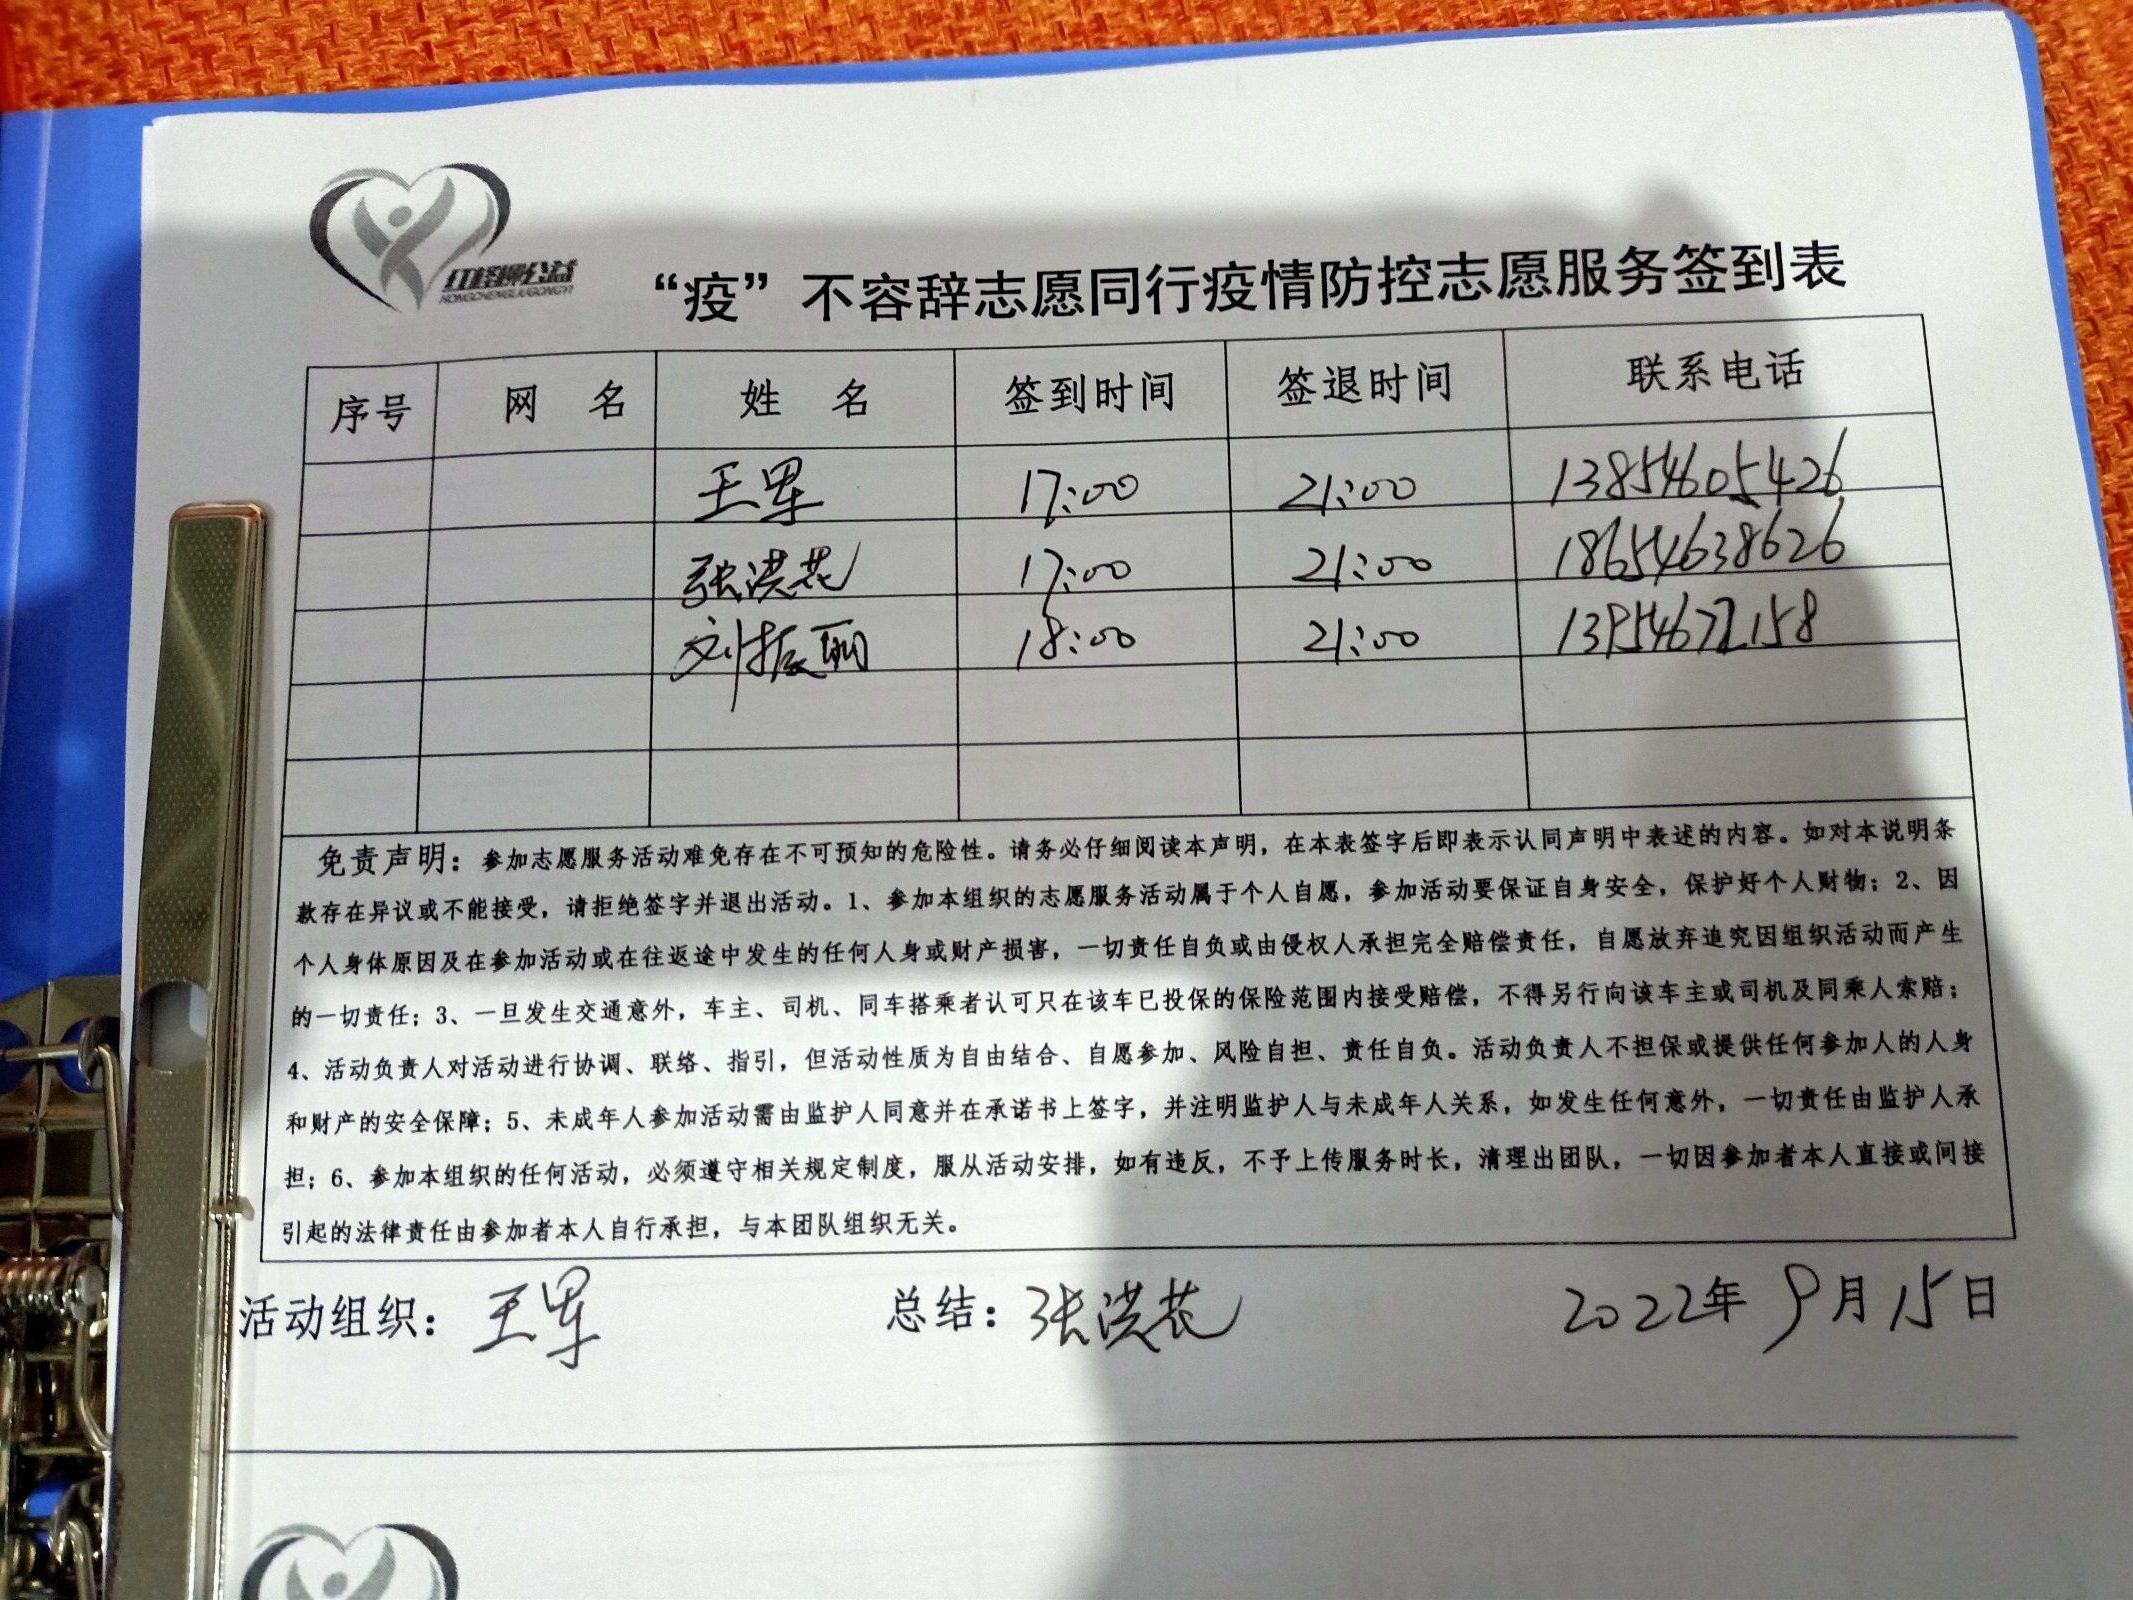 红柽柳公益
HONGCHENGLIUGONGYI
“疫”不容辞志愿同行疫情防控志愿服务签到表
序号 网 名 姓 名 签到时间 签退时间 联系电话
王军 17:00 21:00 13854605426
张洪花 17:00 21:00 18654638626
刘振丽 18:00 21:00
免责声明：参加志愿服务活动难免存在不可预知的危险性。请务必仔细阅读本声明，在本表签字后即表示认同声明中表述的内容。如对本说明条
款存在异议或不能接受，请拒绝签字并退出活动。1、参加本组织的志愿服务活动属于个人自愿，参加活动要保证自身安全，保护好个人财物；2、因
个人身体原因及在参加活动或在往返途中发生的任何人身或财产损害，一切责任自负或由侵权人承担完全赔偿责任，自愿放弃追究因组织活动而产生
的一切责任；3、一旦发生交通意外，车主、司机、同车搭乘者认可只在该车已投保的保险范围内接受赔偿，不得另行向该车主或司机及同乘人索赔；
4、活动负责人对活动进行协调、联络、指引，但活动性质为自由结合、自愿参加、风险自担、责任自负。活动负责人不担保或提供任何参加人的人身
和财产的安全保障；5、未成年人参加活动需由监护人同意并在承诺书上签字，并注明监护人与未成年人关系，如发生任何意外，一切责任由监护人承
担；6、参加本组织的任何活动，必须遵守相关规定制度，服从活动安排，如有违反，不予上传服务时长，清理出团队，一切因参加者本人直接或间接
引起的法律责任由参加者本人自行承担，与本团队组织无关。
活动组织：王军 总结：张洪花 2022年9月15日